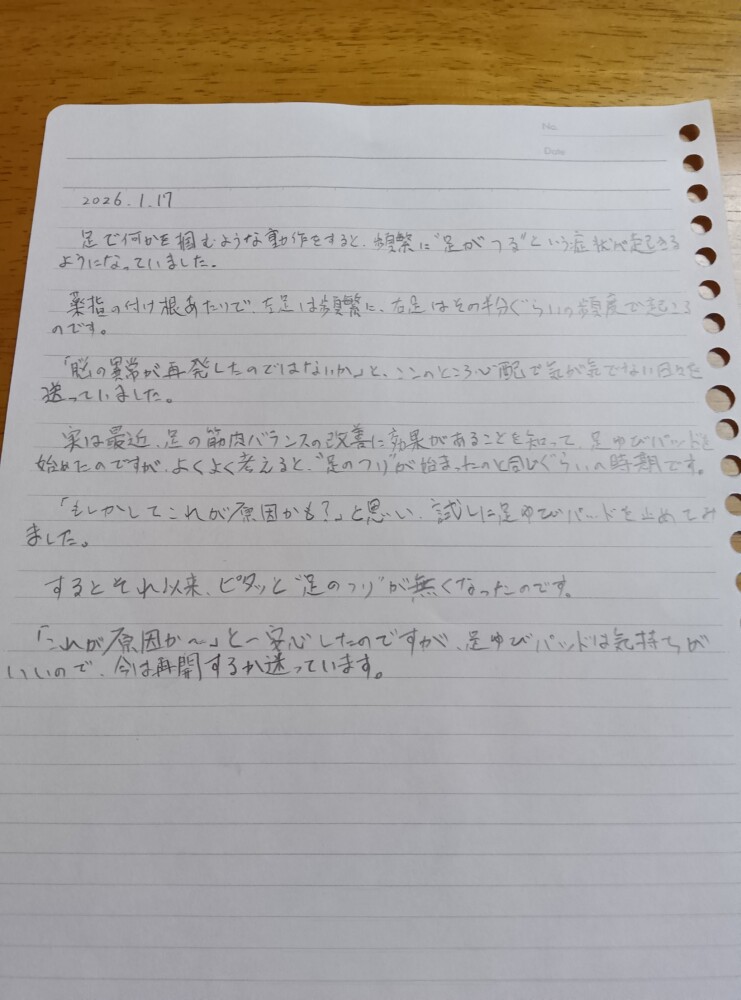 No.
Date
2026.1.17
足で何かを掴むような動作をすると、頻繁に"足がつる"という症状が起きる
ようになっていました。
薬指の付け根あたりで、左足は頻繁に、右足はその半分ぐらいの頻度で起こる
のです。
「脳の異常が再発したのではないか」と、ここのところ心配で気が気でない日々を
送っていました。
実は最近、足の筋肉バランスの改善に効果があることを知って、足ゆびパッドを
始めたのですが、よくよく考えると、"足のつり"が始まったのと同じぐらいの時期です。
「もしかしてこれが原因かも?」と思い、試しに足ゆびパッドを止めてみ
ました。
するとそれ以来、ピタッと"足のつり"が無くなったのです。
「これが原因か〜」と一安心したのですが、足ゆびパッドは気持ちが
いいので、今は再開するか迷っています。